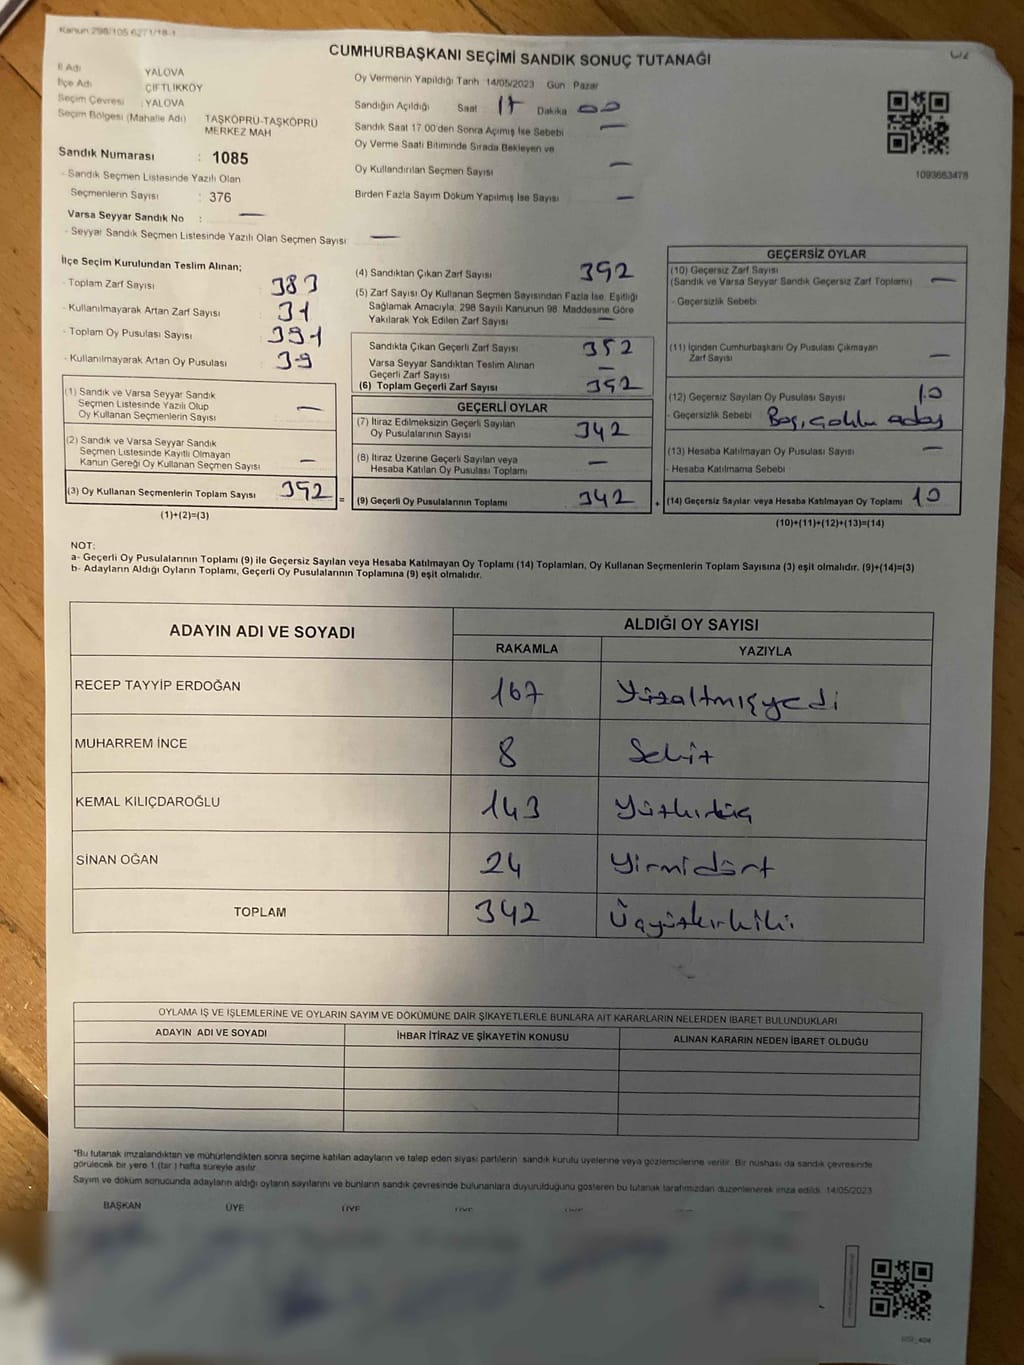 Kanun 298/105 6271/18-1
CUMHURBAŞKANI SEÇİMİ SANDIK SONUÇ TUTANAĞI
İl Adı YALOVA
İlçe Adı ÇİFTLİKKÖY
Seçim Çevresi : YALOVA
Seçim Bölgesi (Mahalle Adı) TAŞKÖPRÜ-TAŞKÖPRÜ
MERKEZ MAH
Sandık Numarası : 1085
- Sandık Seçmen Listesinde Yazılı Olan
Seçmenlerin Sayısı : 376
Varsa Seyyar Sandık No : —
- Seyyar Sandık Seçmen Listesinde Yazılı Olan Seçmen Sayısı —
Oy Vermenin Yapıldığı Tarih 14/05/2023 Gün Pazar
Sandığın Açıldığı Saat 17 Dakika 00
Sandık Saat 17 00'den Sonra Açımış İse Sebebi —
Oy Verme Saati Bitiminde Sırada Bekleyen ve
Oy Kullandırılan Seçmen Sayısı —
Birden Fazla Sayım Döküm Yapılmış İse Sayısı —
1093663478
İlçe Seçim Kurulundan Teslim Alınan;
- Toplam Zarf Sayısı 383
- Kullanılmayarak Artan Zarf Sayısı 31
- Toplam Oy Pusulası Sayısı 391
- Kullanılmayarak Artan Oy Pusulası 39
(1) Sandık ve Varsa Seyyar Sandık
Seçmen Listesinde Yazılı Olup
Oy Kullanan Seçmenlerin Sayısı —
(2) Sandık ve Varsa Seyyar Sandık
Seçmen Listesinde Kayıtlı Olmayan
Kanun Gereği Oy Kullanan Seçmen Sayısı —
(3) Oy Kullanan Seçmenlerin Toplam Sayısı 352 =
(1)+(2)=(3)
(4) Sandıktan Çıkan Zarf Sayısı 392
(5) Zarf Sayısı Oy Kullanan Seçmen Sayısından Fazla İse, Eşitliği
Sağlamak Amacıyla, 298 Sayılı Kanunun 98. Maddesine Göre
Yakılarak Yok Edilen Zarf Sayısı —
Sandıkta Çıkan Geçerli Zarf Sayısı 352
Varsa Seyyar Sandıktan Teslim Alınan
Geçerli Zarf Sayısı —
(6) Toplam Geçerli Zarf Sayısı 352
GEÇERLİ OYLAR
(7) İtiraz Edilmeksizin Geçerli Sayılan
Oy Pusulalarının Sayısı 342
(8) İtiraz Üzerine Geçerli Sayılan veya
Hesaba Katılan Oy Pusulası Toplamı —
(9) Geçerli Oy Pusulalarının Toplamı 342 +
GEÇERSİZ OYLAR
(10) Geçersiz Zarf Sayısı
(Sandık ve Varsa Seyyar Sandık Geçersiz Zarf Toplamı) —
- Geçersizlik Sebebi
(11) İçinden Cumhurbaşkanı Oy Pusulası Çıkmayan
Zarf Sayısı —
(12) Geçersiz Sayılan Oy Pusulası Sayısı 10
- Geçersizlik Sebebi Boş, çoklu aday
(13) Hesaba Katılmayan Oy Pusulası Sayısı —
- Hesaba Katılmama Sebebi
(14) Geçersiz Sayılar veya Hesaba Katılmayan Oy Toplamı 10
(10)+(11)+(12)+(13)=(14)
NOT:
a- Geçerli Oy Pusulalarının Toplamı (9) ile Geçersiz Sayılan veya Hesaba Katılmayan Oy Toplamı (14) Toplamları, Oy Kullanan Seçmenlerin Toplam Sayısına (3) eşit olmalıdır. (9)+(14)=(3)
b- Adayların Aldığı Oyların Toplamı, Geçerli Oy Pusulalarının Toplamına (9) eşit olmalıdır.
ADAYIN ADI VE SOYADI ALDIĞI OY SAYISI
RAKAMLA YAZIYLA
RECEP TAYYİP ERDOĞAN 167 Yüzaltmışyedi
MUHARREM İNCE 8 Sekiz
KEMAL KILIÇDAROĞLU 143 Yüzkırküç
SİNAN OĞAN 24 Yirmidört
TOPLAM 342 Üçyüzkırkiki
OYLAMA İŞ VE İŞLEMLERİNE VE OYLARIN SAYIM VE DÖKÜMÜNE DAİR ŞİKAYETLERLE BUNLARA AİT KARARLARIN NELERDEN İBARET BULUNDUKLARI
ADAYIN ADI VE SOYADI İHBAR İTİRAZ VE ŞİKAYETİN KONUSU ALINAN KARARIN NEDEN İBARET OLDUĞU
*Bu tutanak imzalandıktan ve mühürlendikten sonra seçime katılan adayların ve talep eden siyasi partilerin sandık kurulu üyelerine veya gözlemcilerine verilir. Bir nüshası da sandık çevresinde
görülecek bir yere 1 (bir ) hafta süreyle asılır.
Sayım ve döküm sonucunda adayların aldığı oyların sayılarını ve bunların sandık çevresinde bulunanlara duyurulduğunu gösteren bu tutanak tarafımızdan düzenlenerek imza edildi. 14/05/2023
BAŞKAN ÜYE ÜYE ÜYE